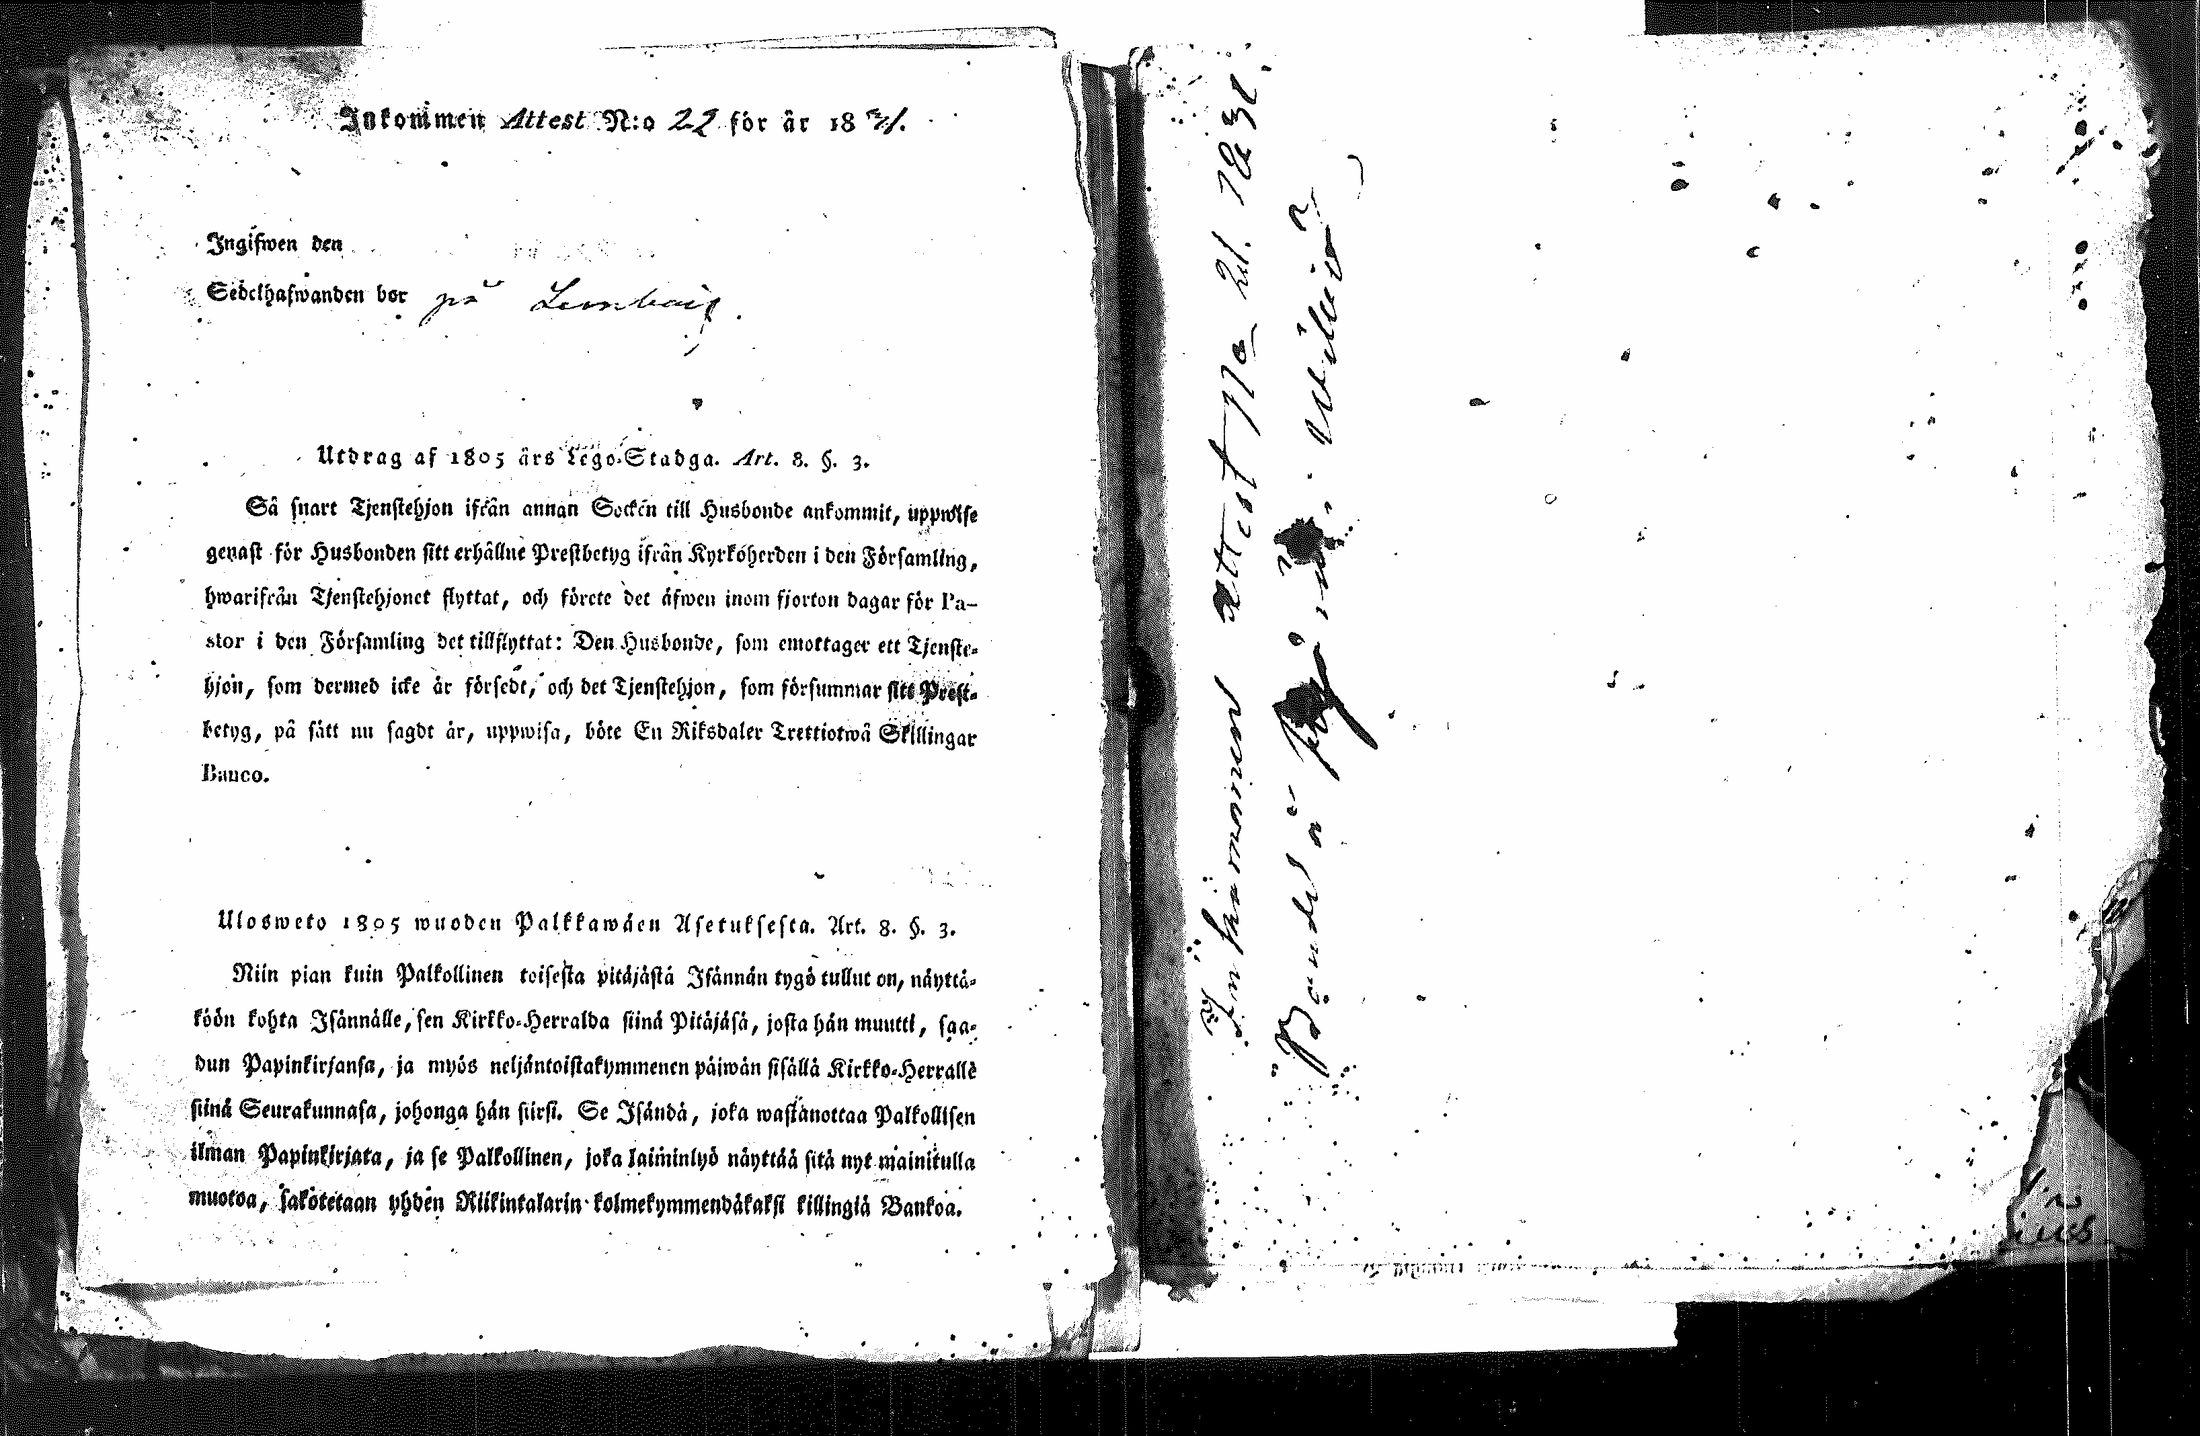 Inkommen Attest N:o 22 för år 1831.
Ingifwen den
Sedelhafwanden bor på Lembois.
Utdrag af 1805 års Lego-Stadga. Art. 8. §. 3.
Så snart Tjenstehjon ifrån annan Socken till Husbonde ankommit, uppwise
genast för Husbonden sitt erhållne Prestbetyg ifrån Kyrkoherden i den Församling,
hwarifrån Tjenstehjonet flyttat, och förete det äfwen inom fjorton dagar för Pa-
stor i den Församling det tillflyttat: Den Husbonde, som emottager ett Tjenste-
hjon, som dermed icke är försedt, och det Tjenstehjon, som försummar sitt Prest-
betyg, på sätt nu sagdt är, uppwisa, böte En Riksdaler Trettiotwå Skillingar
Banco.
Ulosweto 1805 wuoden Palkkawäen Asetuksesta. Art. 8. §. 3.
Niin pian kuin Palkollinen toisesta pitäjästä Isännän tygö tullut on, näyttä-
köön kohta Isännälle, sen Kirkko-Herralda siinä Pitäjäsä, josta hän muutti, saa-
dun Papinkirjansa, ja myös neljäntoistakymmenen päiwän sisällä Kirkko-Herralle
siinä Seurakunnasa, johonga hän siirsi. Se Isändä, joka wastanottaa Palkollisen
ilman Papinkirjata, ja se Palkollinen, joka laiminlyö näyttää sitä nyt mainitulla
muotoa, sakotetaan yhden Riikintalarin kolmekymmendäkaksi killingiä Bankoa.
Inkommen attest No 21. 1831.